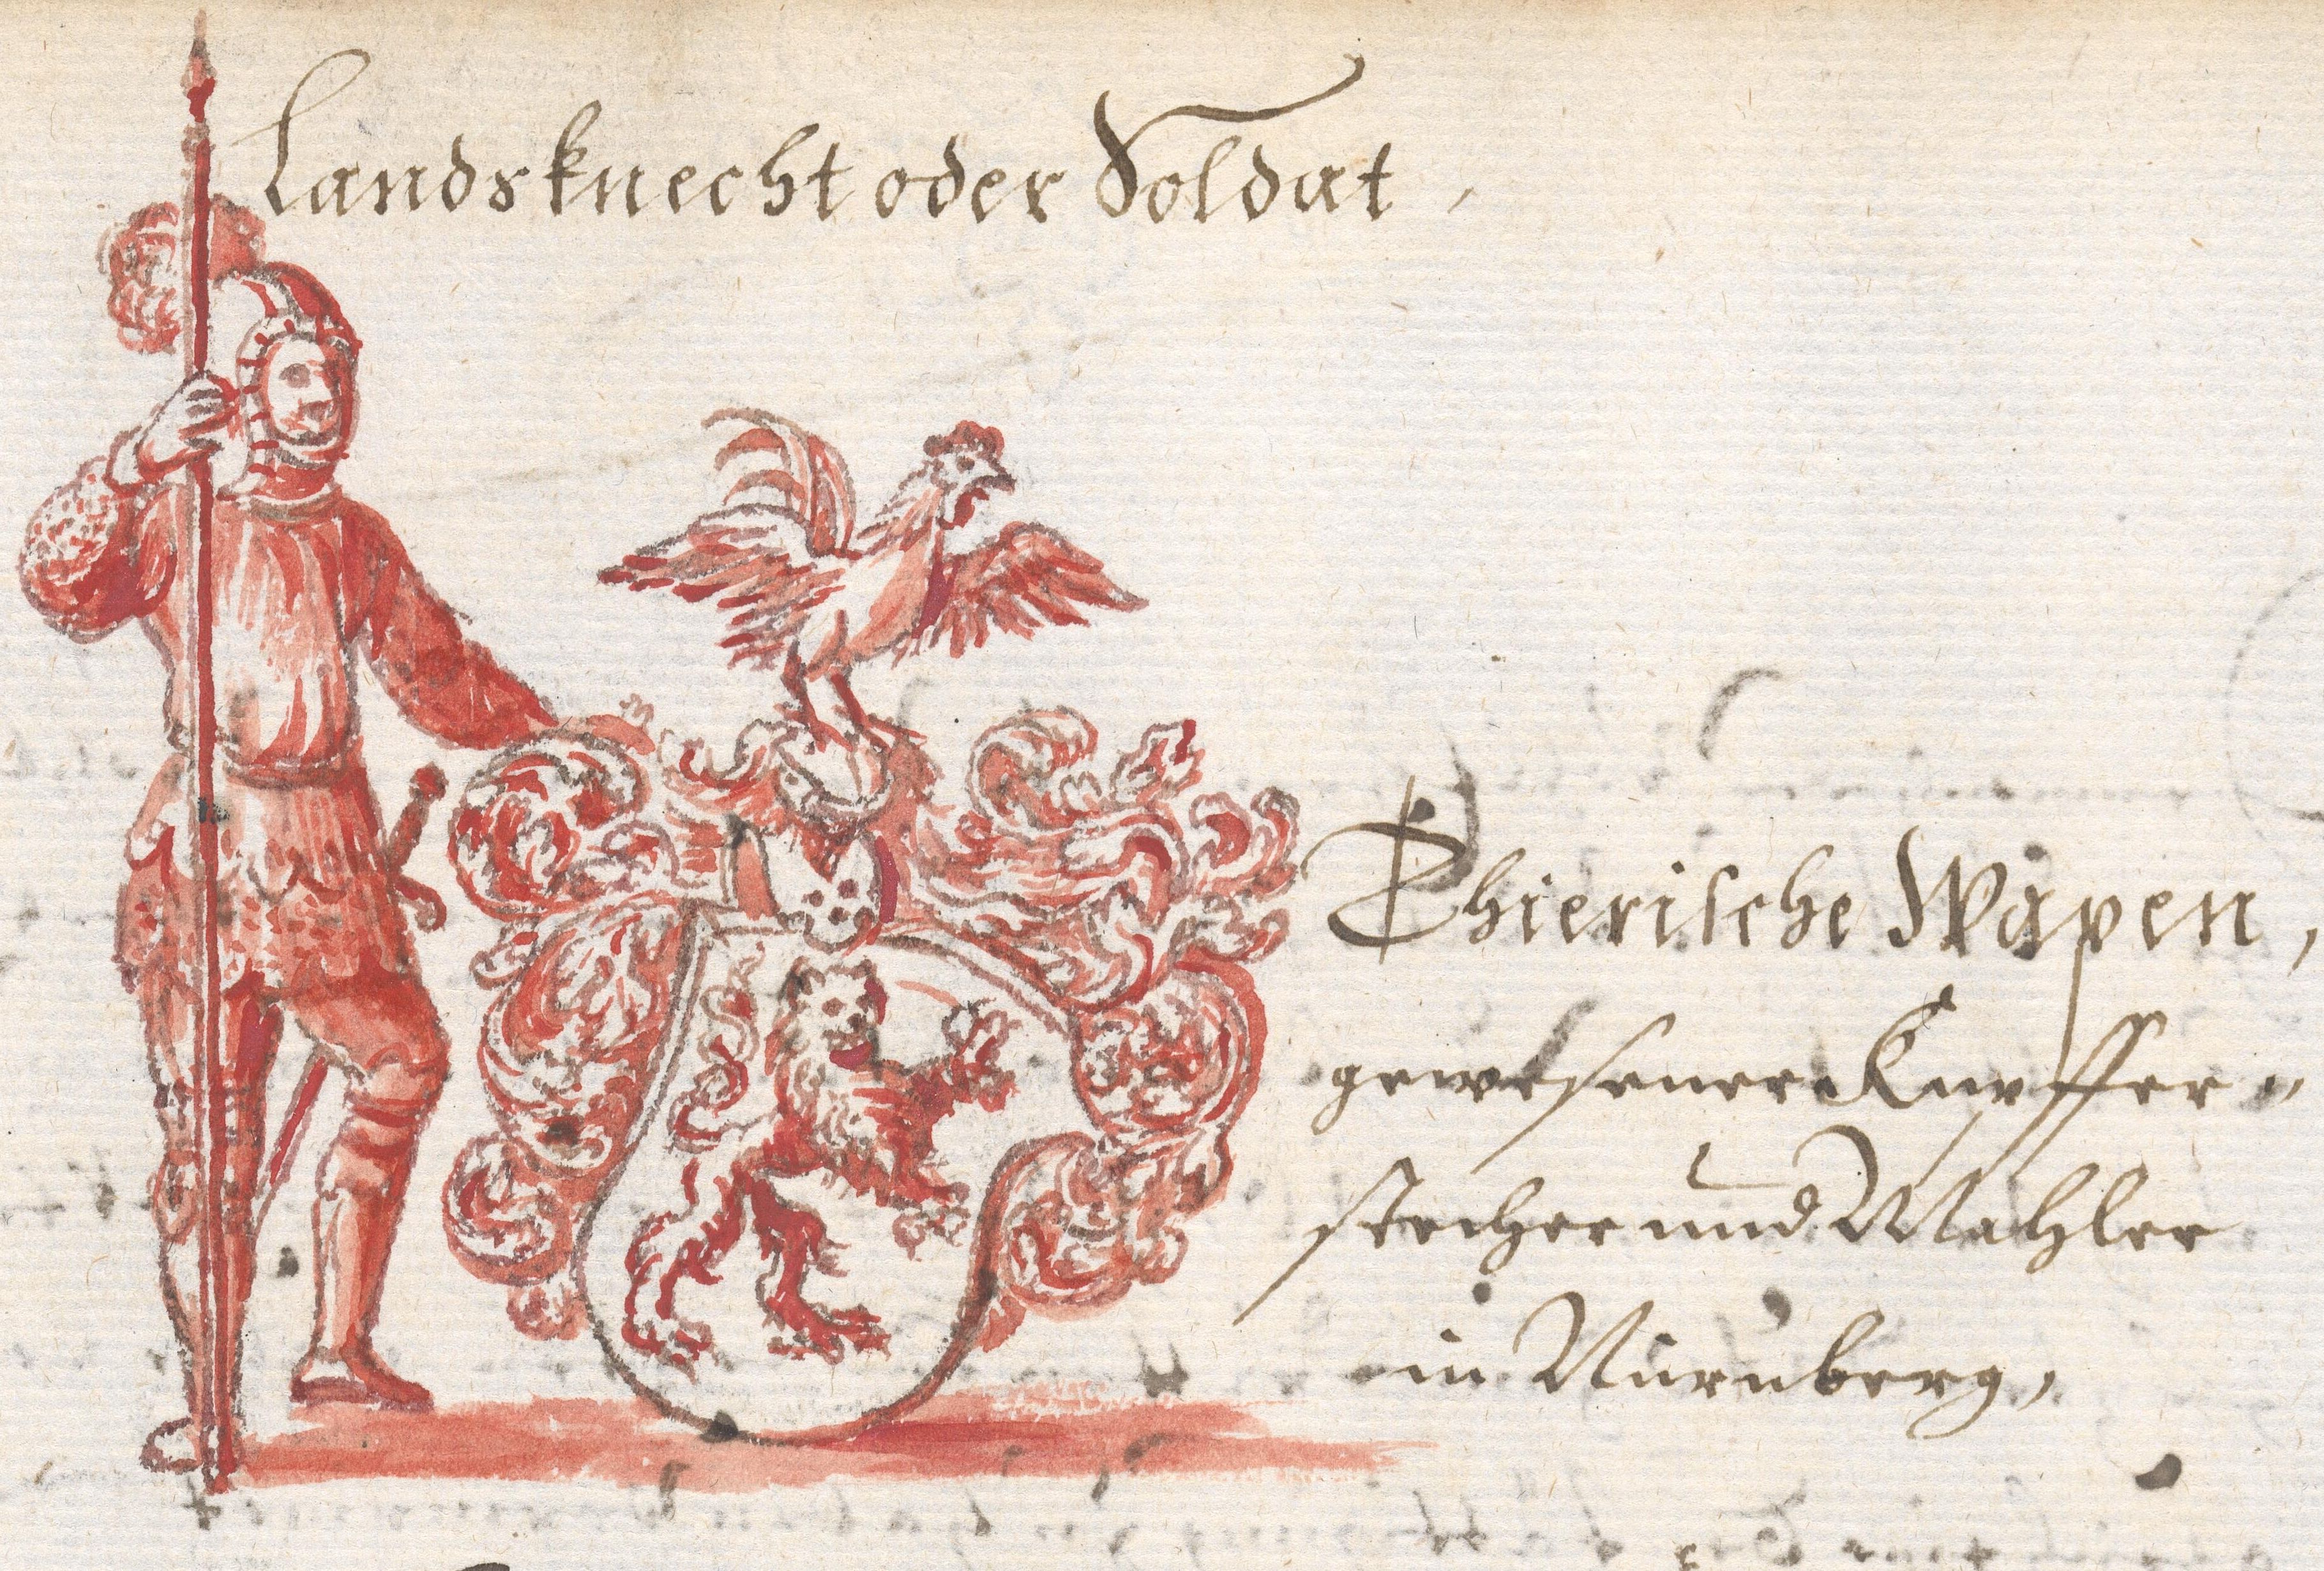 Landsknecht oder Soldat,
Thierische Wapen,
gewesener Kupffer„
stecher und Mahler
in Nürnberg,